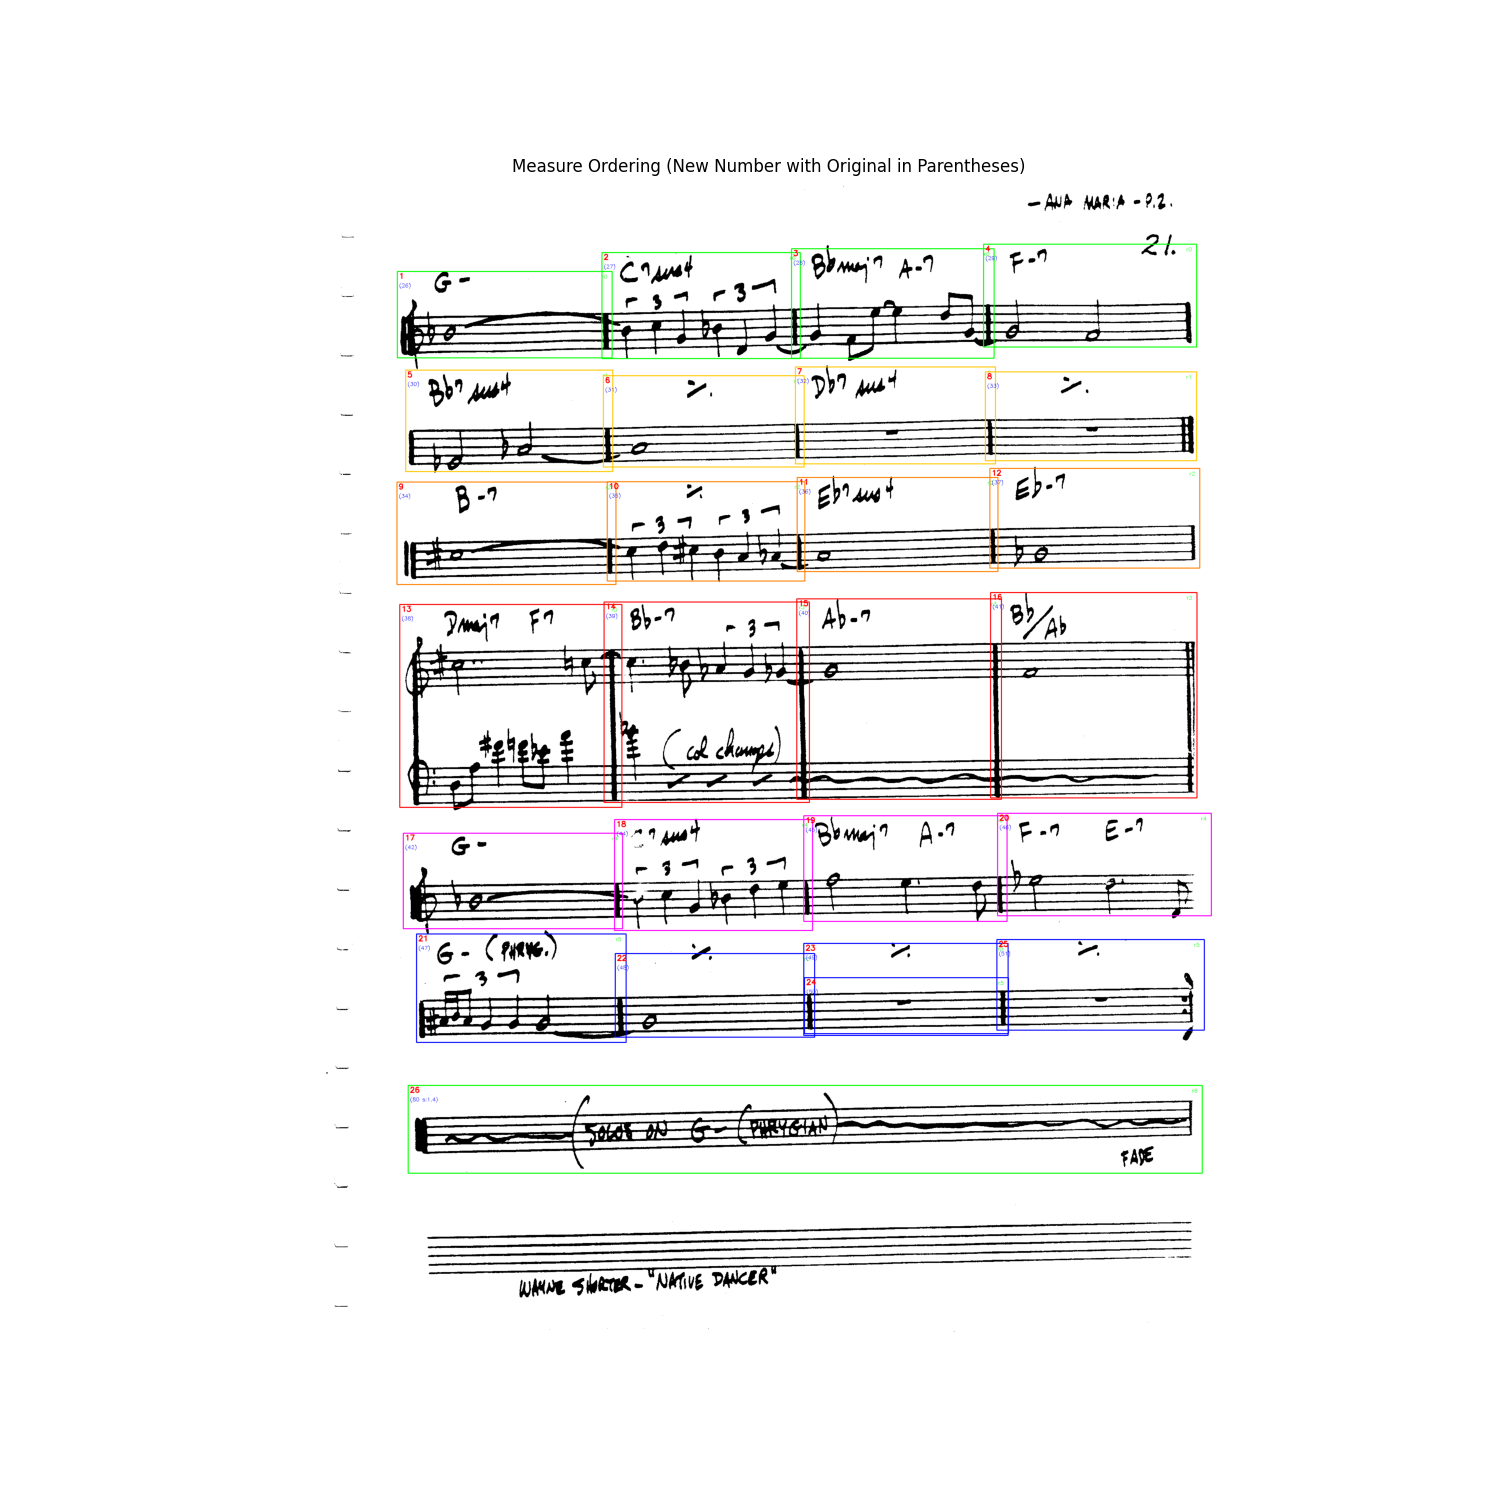 Measure Ordering (New Number with Original in Parentheses)
- ANA MARIA - P.2.
21.
1 (26) G- 2 (27) C7sus4 3 (28) Bbmaj7 A-7 4 (29) F-7
3 3
5 (30) Bb7sus4 6 (31) 7 (32) Db7sus4 8 (33)
9 (34) B-7 10 (35) 11 (36) Eb7sus4 12 (37) Eb-7
3 3
13 (38) Dmaj7 F7 14 (39) Bb-7 15 (40) Ab-7 16 (41) Bb/Ab
3
(col changes)
17 (42) G- 18 C7sus4 19 Bbmaj7 A-7 20 F-7 E-7
3 3
21 (47) G- (PHRYG.) 22 (48) 23 (49) 25 (51)
3
24
26
(80 s:1.4)
(SOLOS ON G- (PHRYGIAN)
FADE
WAYNE SHORTER - "NATIVE DANCER"